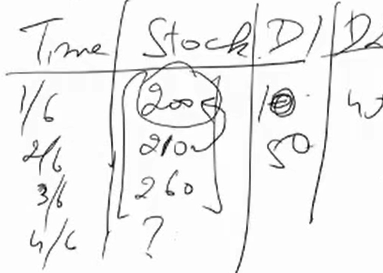 Time Stock D1
1/6 200 10
2/6 210 50
3/6 260
4/6 ?